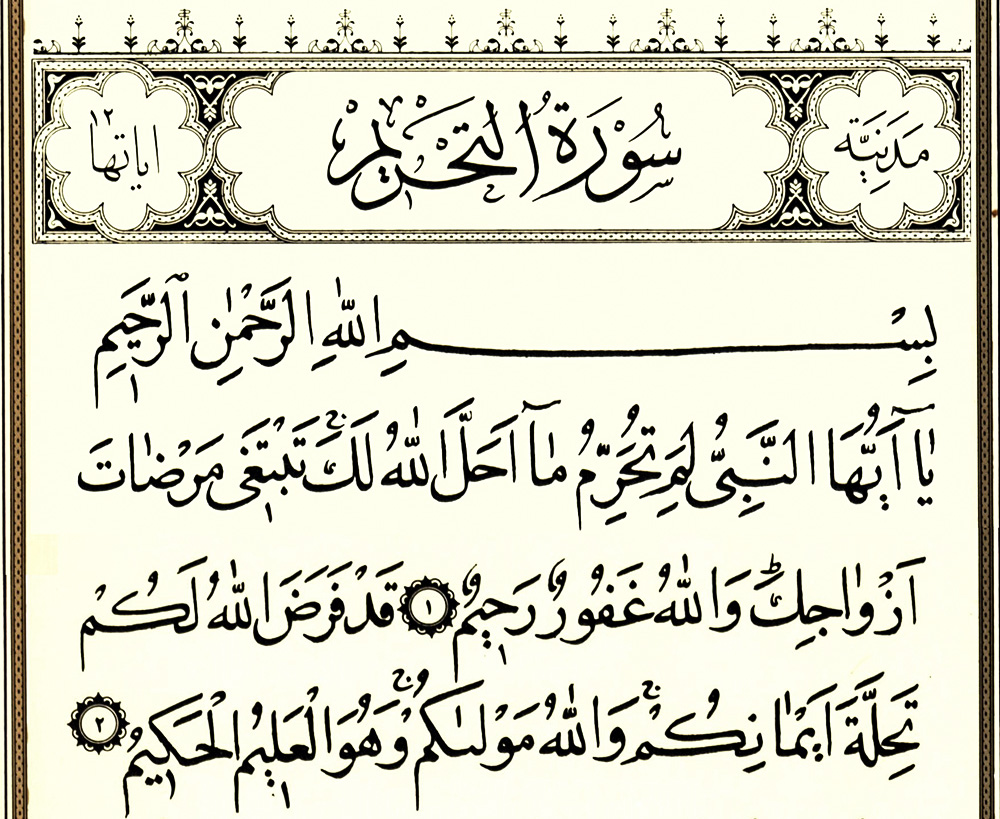 مَدَنِيَّة سُورَةُ التَّحْرِيمِ اياتها ١٢
بِسْمِ اللّٰهِ الرَّحْمٰنِ الرَّحِيمِ
يَٓا اَيُّهَا النَّبِىُّ لِمَ تُحَرِّمُ مَٓا اَحَلَّ اللّٰهُ لَكَۚ تَبْتَغ۪ى مَرْضَاتَ
اَزْوَاجِكَۜ وَاللّٰهُ غَفُورٌ رَح۪يمٌ ١ قَدْ فَرَضَ اللّٰهُ لَكُمْ
تَحِلَّةَ اَيْمَانِكُمْۚ وَاللّٰهُ مَوْلٰيكُمْۚ وَهُوَ الْعَل۪يمُ الْحَك۪يمُ ٢